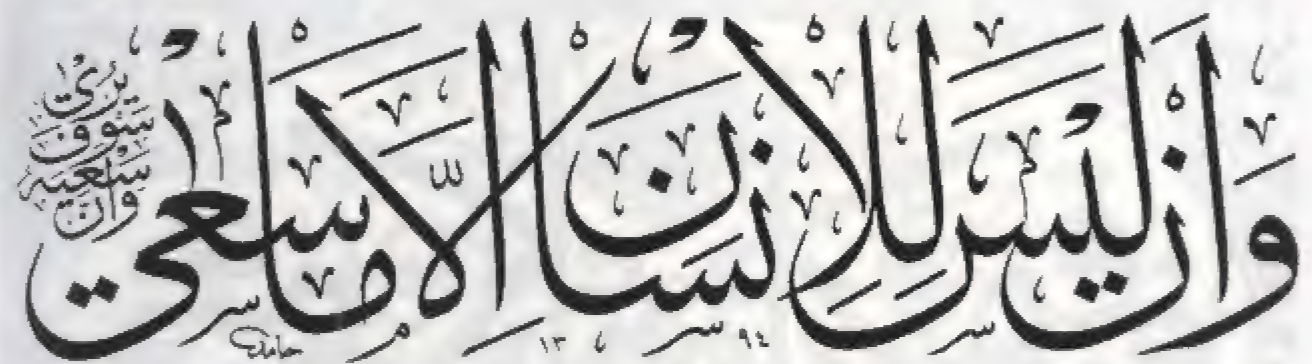 وَاَنْ لَيْسَ لِلْاِنْسَانِ اِلَّا مَا سَعٰى
وَاَنَّ سَعْيَهُ سَوْفَ يُرٰى
حامد
١٣٩٤